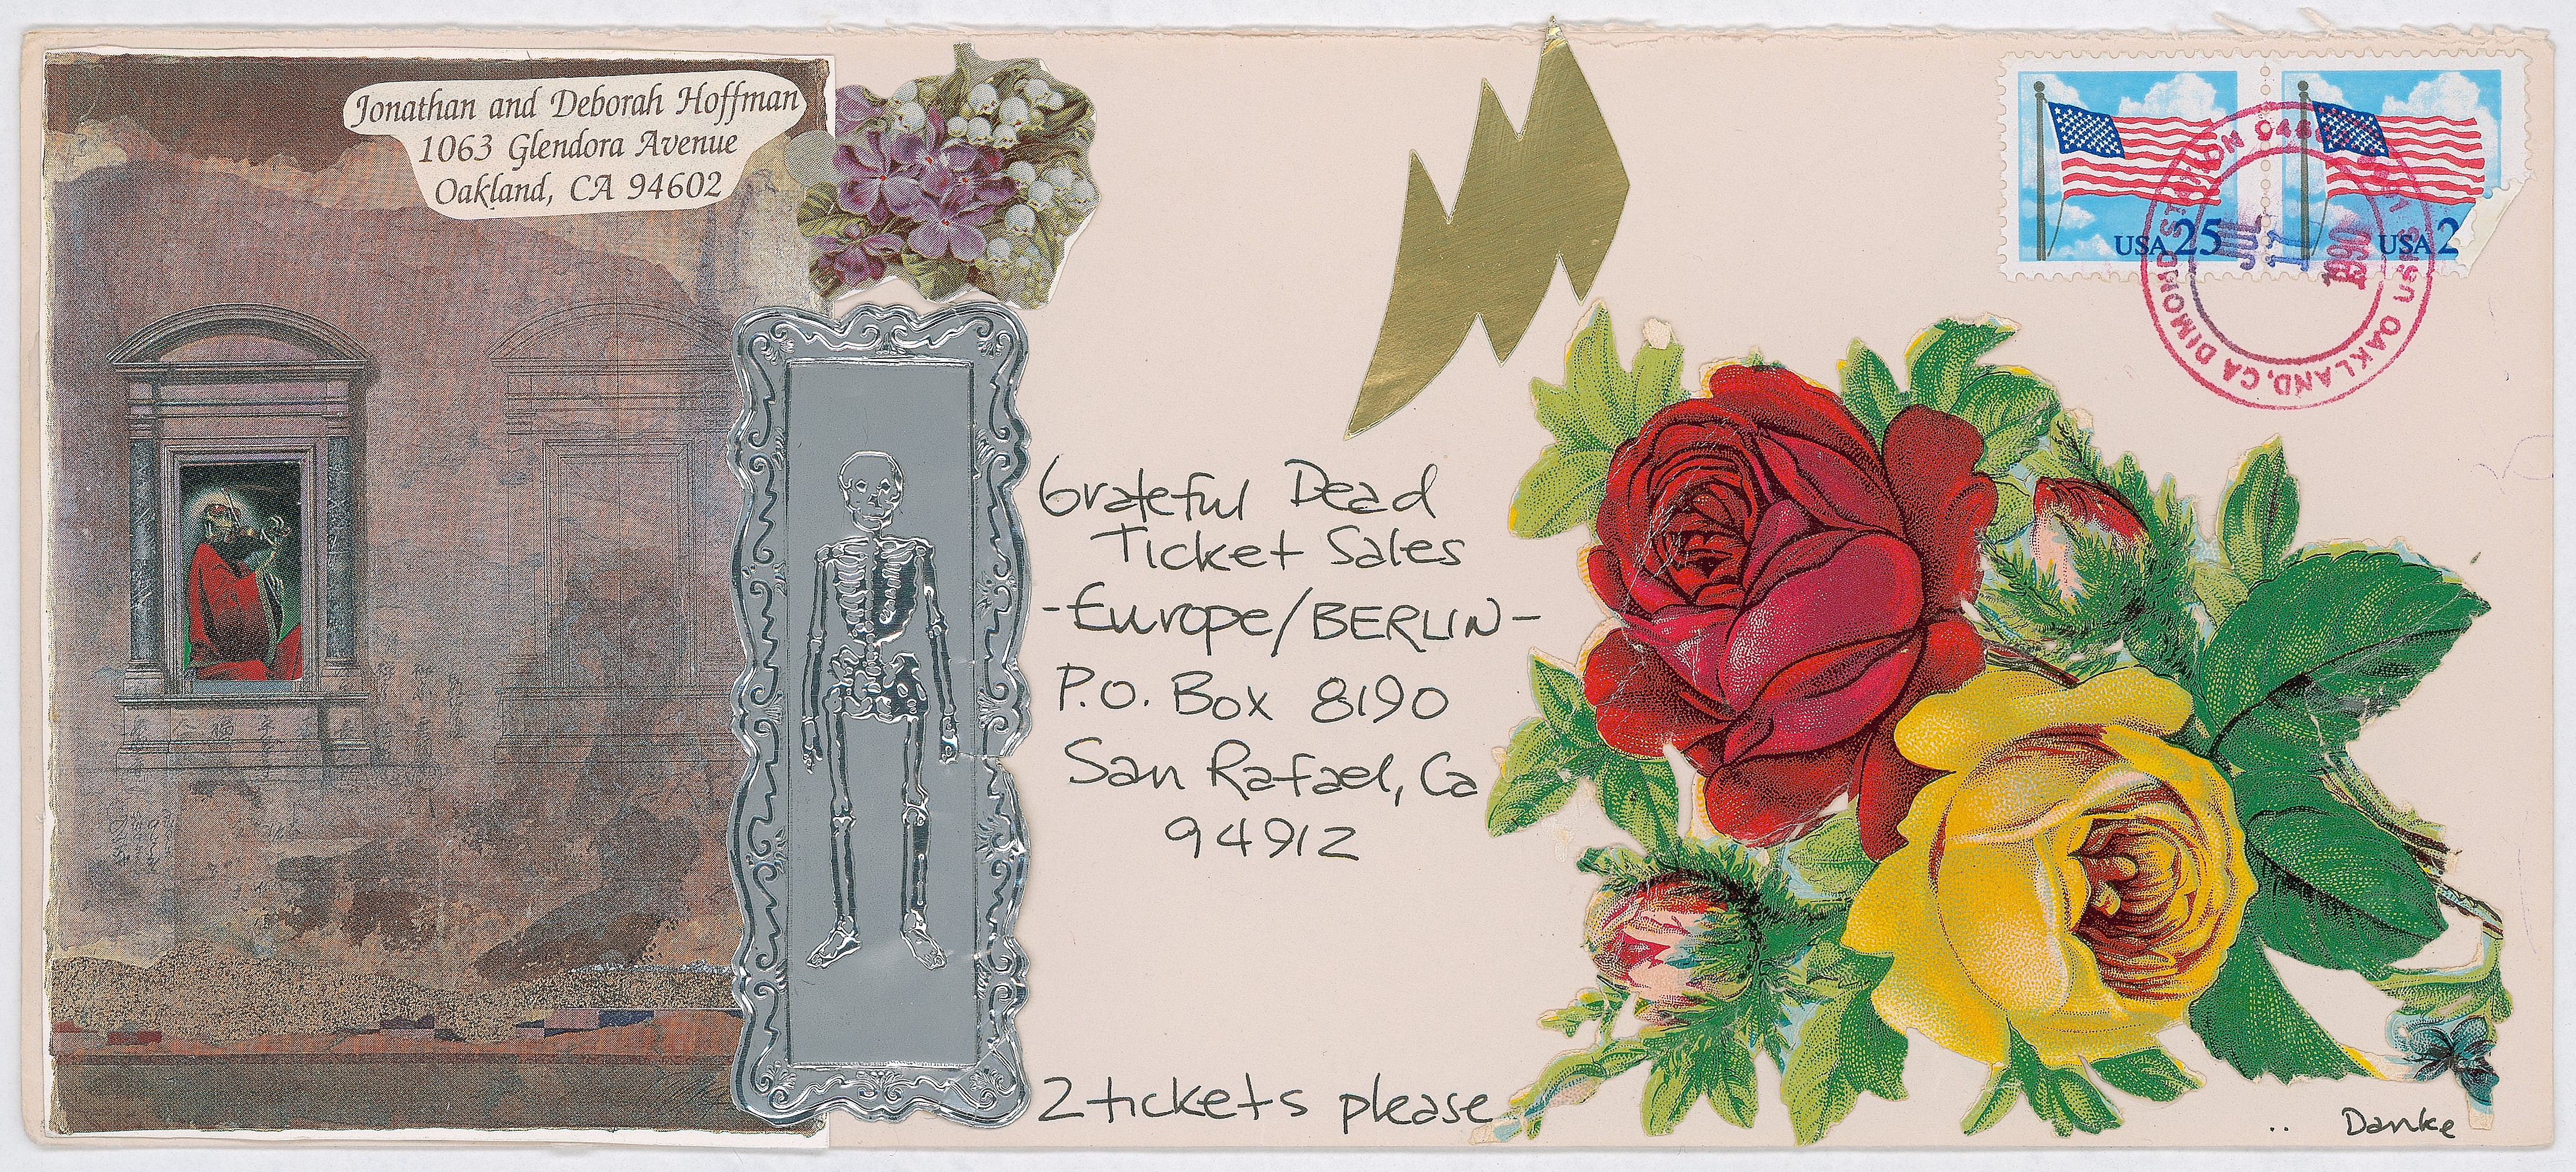 Jonathan and Deborah Hoffman
1063 Glendora Avenue
Oakland, CA 94602
USA 25
USA 2
OAKLAND, CA DIMOND STATION
JUL
17
1990
Grateful Dead
Ticket Sales
-Europe/BERLIN-
P.O. Box 8190
San Rafael, Ca
94912
2 tickets please
.. Danke